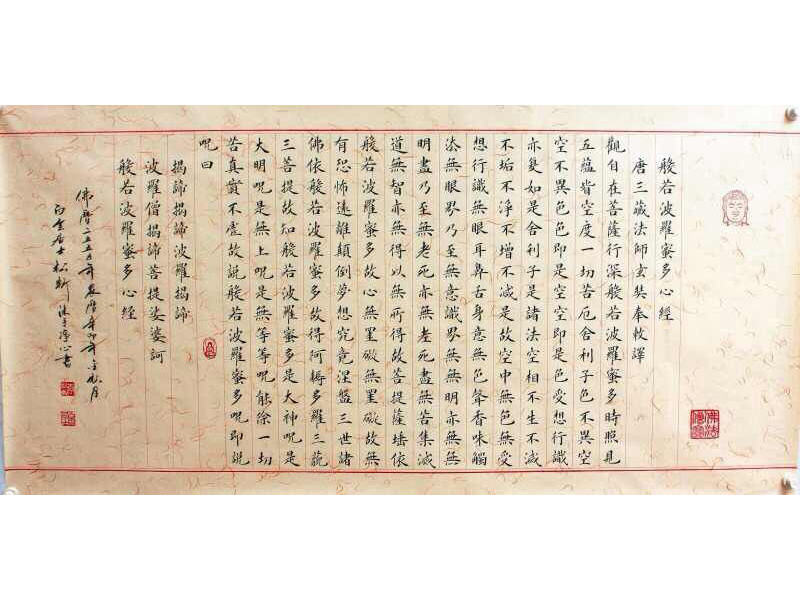 般若波羅蜜多心經
唐三藏法師玄奘奉敕譯
觀自在菩薩行深般若波羅蜜多時照見
五蘊皆空度一切苦厄舍利子色不異空
空不異色色即是空空即是色受想行識
亦复如是舍利子是諸法空相不生不滅
不垢不淨不增不減是故空中無色無受
想行識無眼耳鼻舌身意無色聲香味觸
法無眼界乃至無意識界無無明亦無無
明盡乃至無老死亦無老死盡無苦集滅
道無智亦無得以無所得故菩提薩埵依
般若波羅蜜多故心無罣礙無罣礙故無
有恐怖遠離顛倒夢想究竟涅盤三世諸
佛依般若波羅蜜多故得阿耨多羅三藐
三菩提故知般若波羅蜜多是大神咒是
大明咒是無上咒是無等等咒能除一切
苦真實不虛故說般若波羅蜜多咒即說
咒曰
揭諦揭諦波羅揭諦
波羅僧揭諦菩提娑婆訶
般若波羅蜜多心經
佛曆二五五五年農曆辛卯年月
居士松沐手淨心書